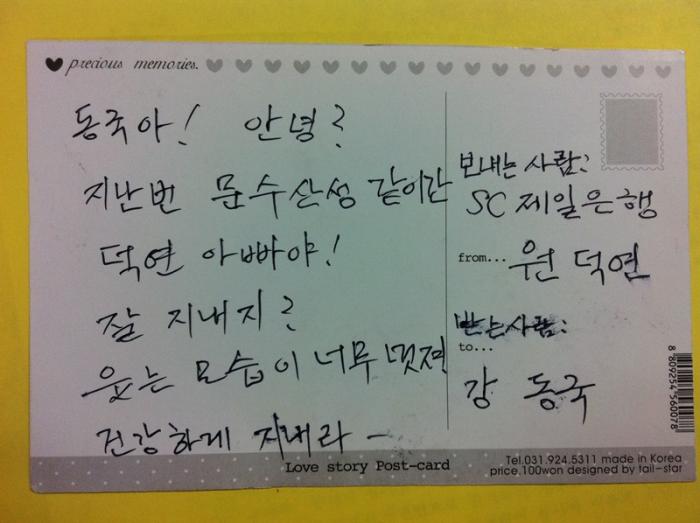 precious memories.
동국아! 안녕?
지난번 문수산성 같이간
덕연 아빠야!
잘 지내지?
웃는 모습이 너무 멋져
건강하게 지내라 –
보내는 사람:
SC 제일은행
from... 원 덕연
받는사람:
to...
강 동국
8 809254 560078
Love story Post-card
Tel.031.924.5311 made in Korea
price.100won designed by tail-star